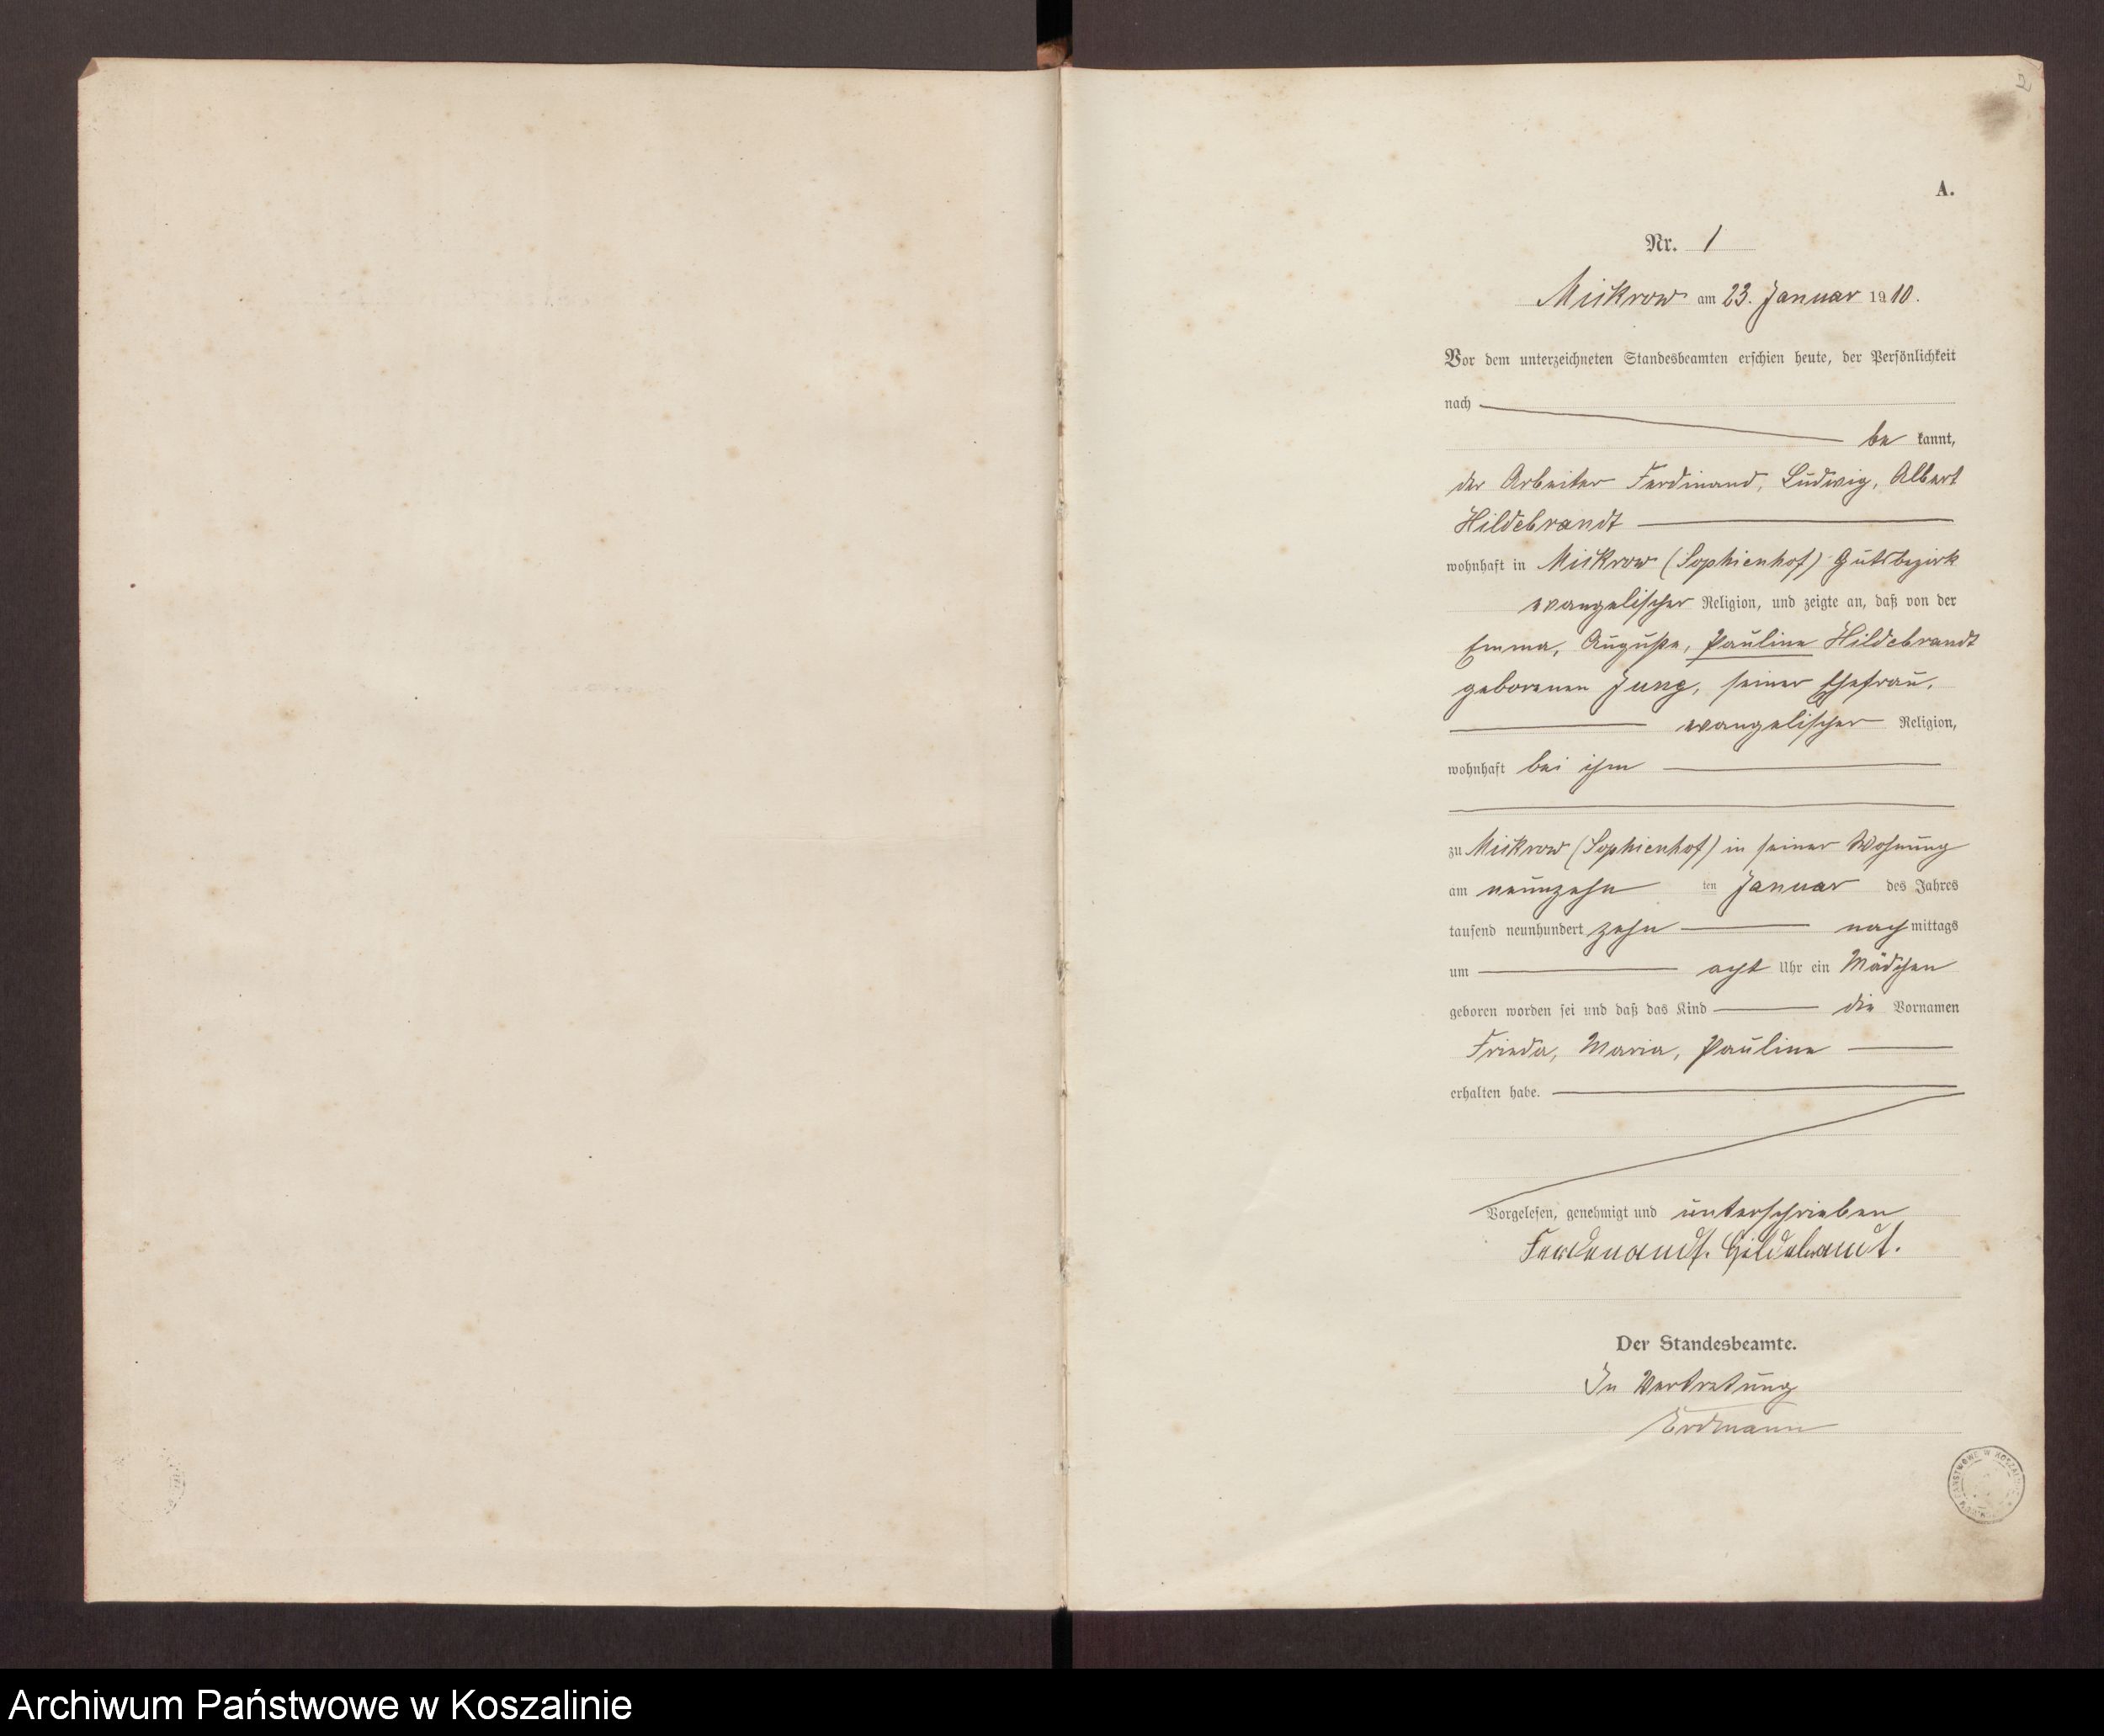 2
A.
Nr. 1
Mickrow am 23. Januar 1910.
Vor dem unterzeichneten Standesbeamten erschien heute, der Persönlichkeit
nach
be kannt,
der Arbeiter Ferdinand, Ludwig, Albert
Hildebrandt
wohnhaft in Mickrow (Sophienhof) Gutsbezirk
evangelischer Religion, und zeigte an, daß von der
Emma, Auguste, Pauline Hildebrandt
geborenen Jung, seiner Ehefrau,
evangelischer Religion,
wohnhaft bei ihm
zu Mickrow (Sophienhof) in seiner Wohnung
am neunzehn ten Januar des Jahres
tausend neunhundert zehn nachmittags
um acht Uhr ein Mädchen
geboren worden sei und daß das Kind die Vornamen
Frieda, Maria, Pauline
erhalten habe.
Vorgelesen, genehmigt und unterschrieben
Ferdenandt. Hildebrandt.
Der Standesbeamte.
In Vertretung
Erdmann
Archiwum Państwowe w Koszalinie